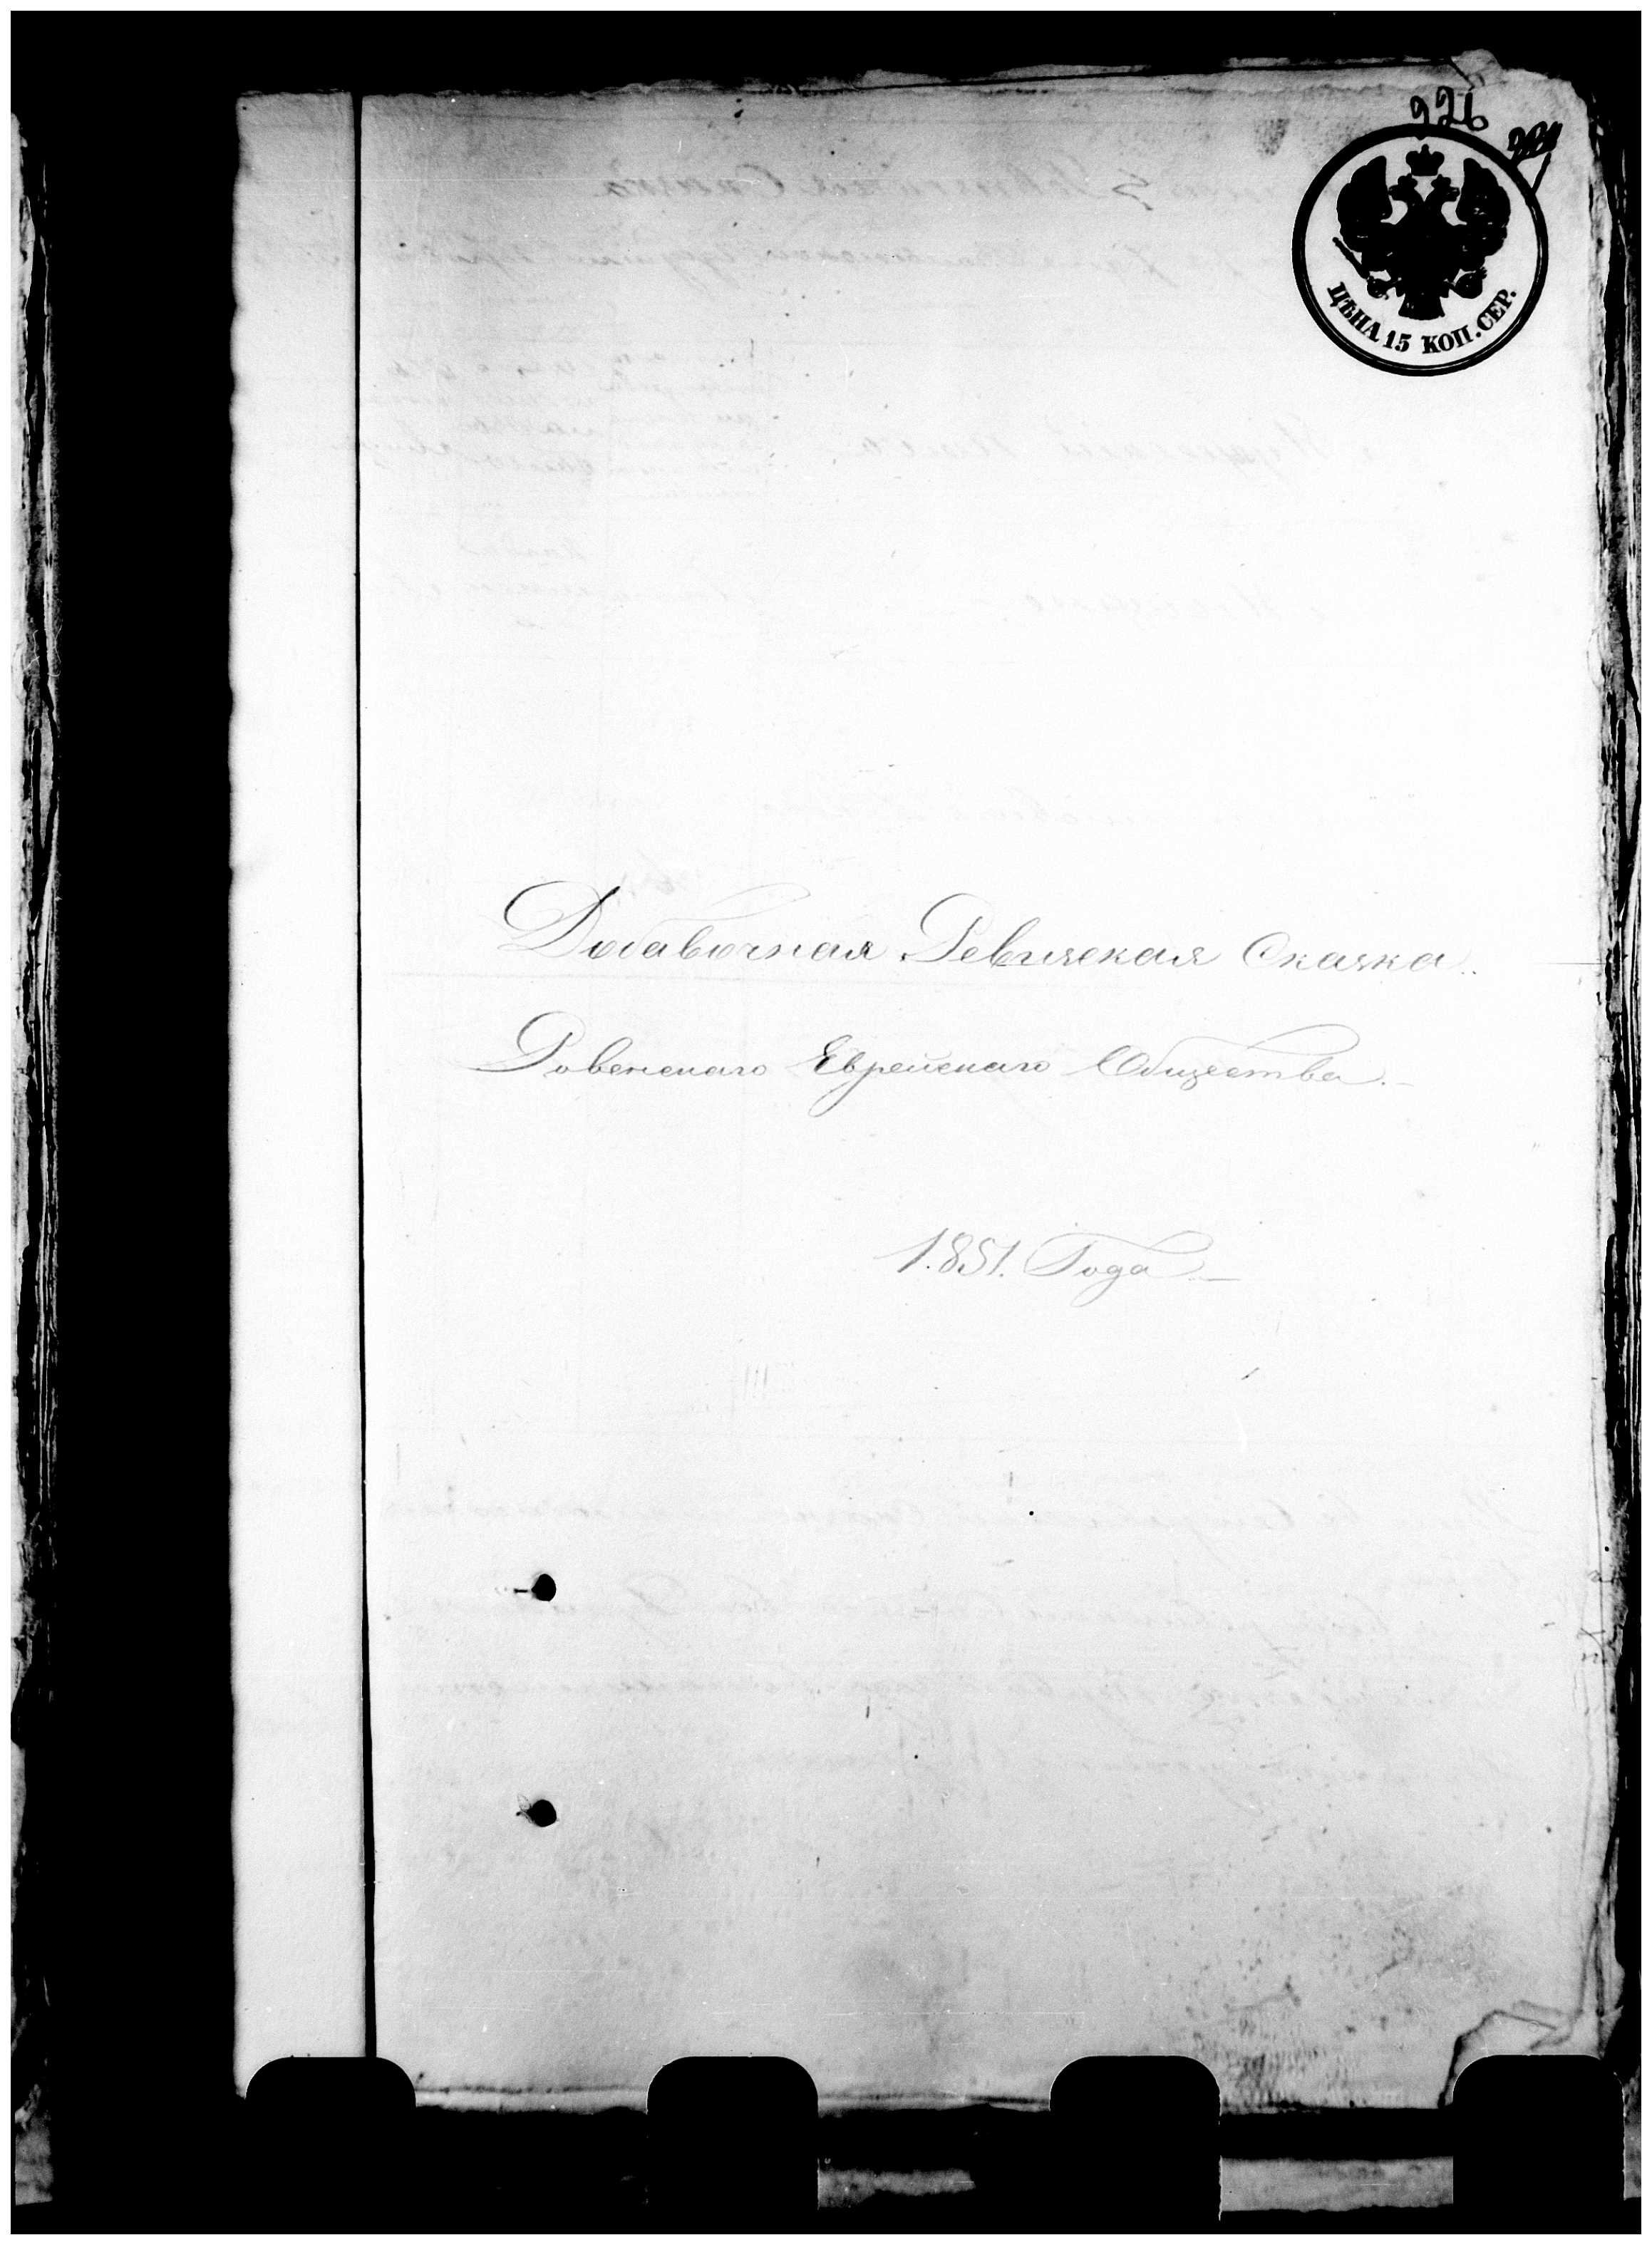 226
ЦѢНА 15 КОП. СЕР.
Добавочная Ревизская Сказка.
Ровенскаго Еврейскаго Общества.
1851. Года